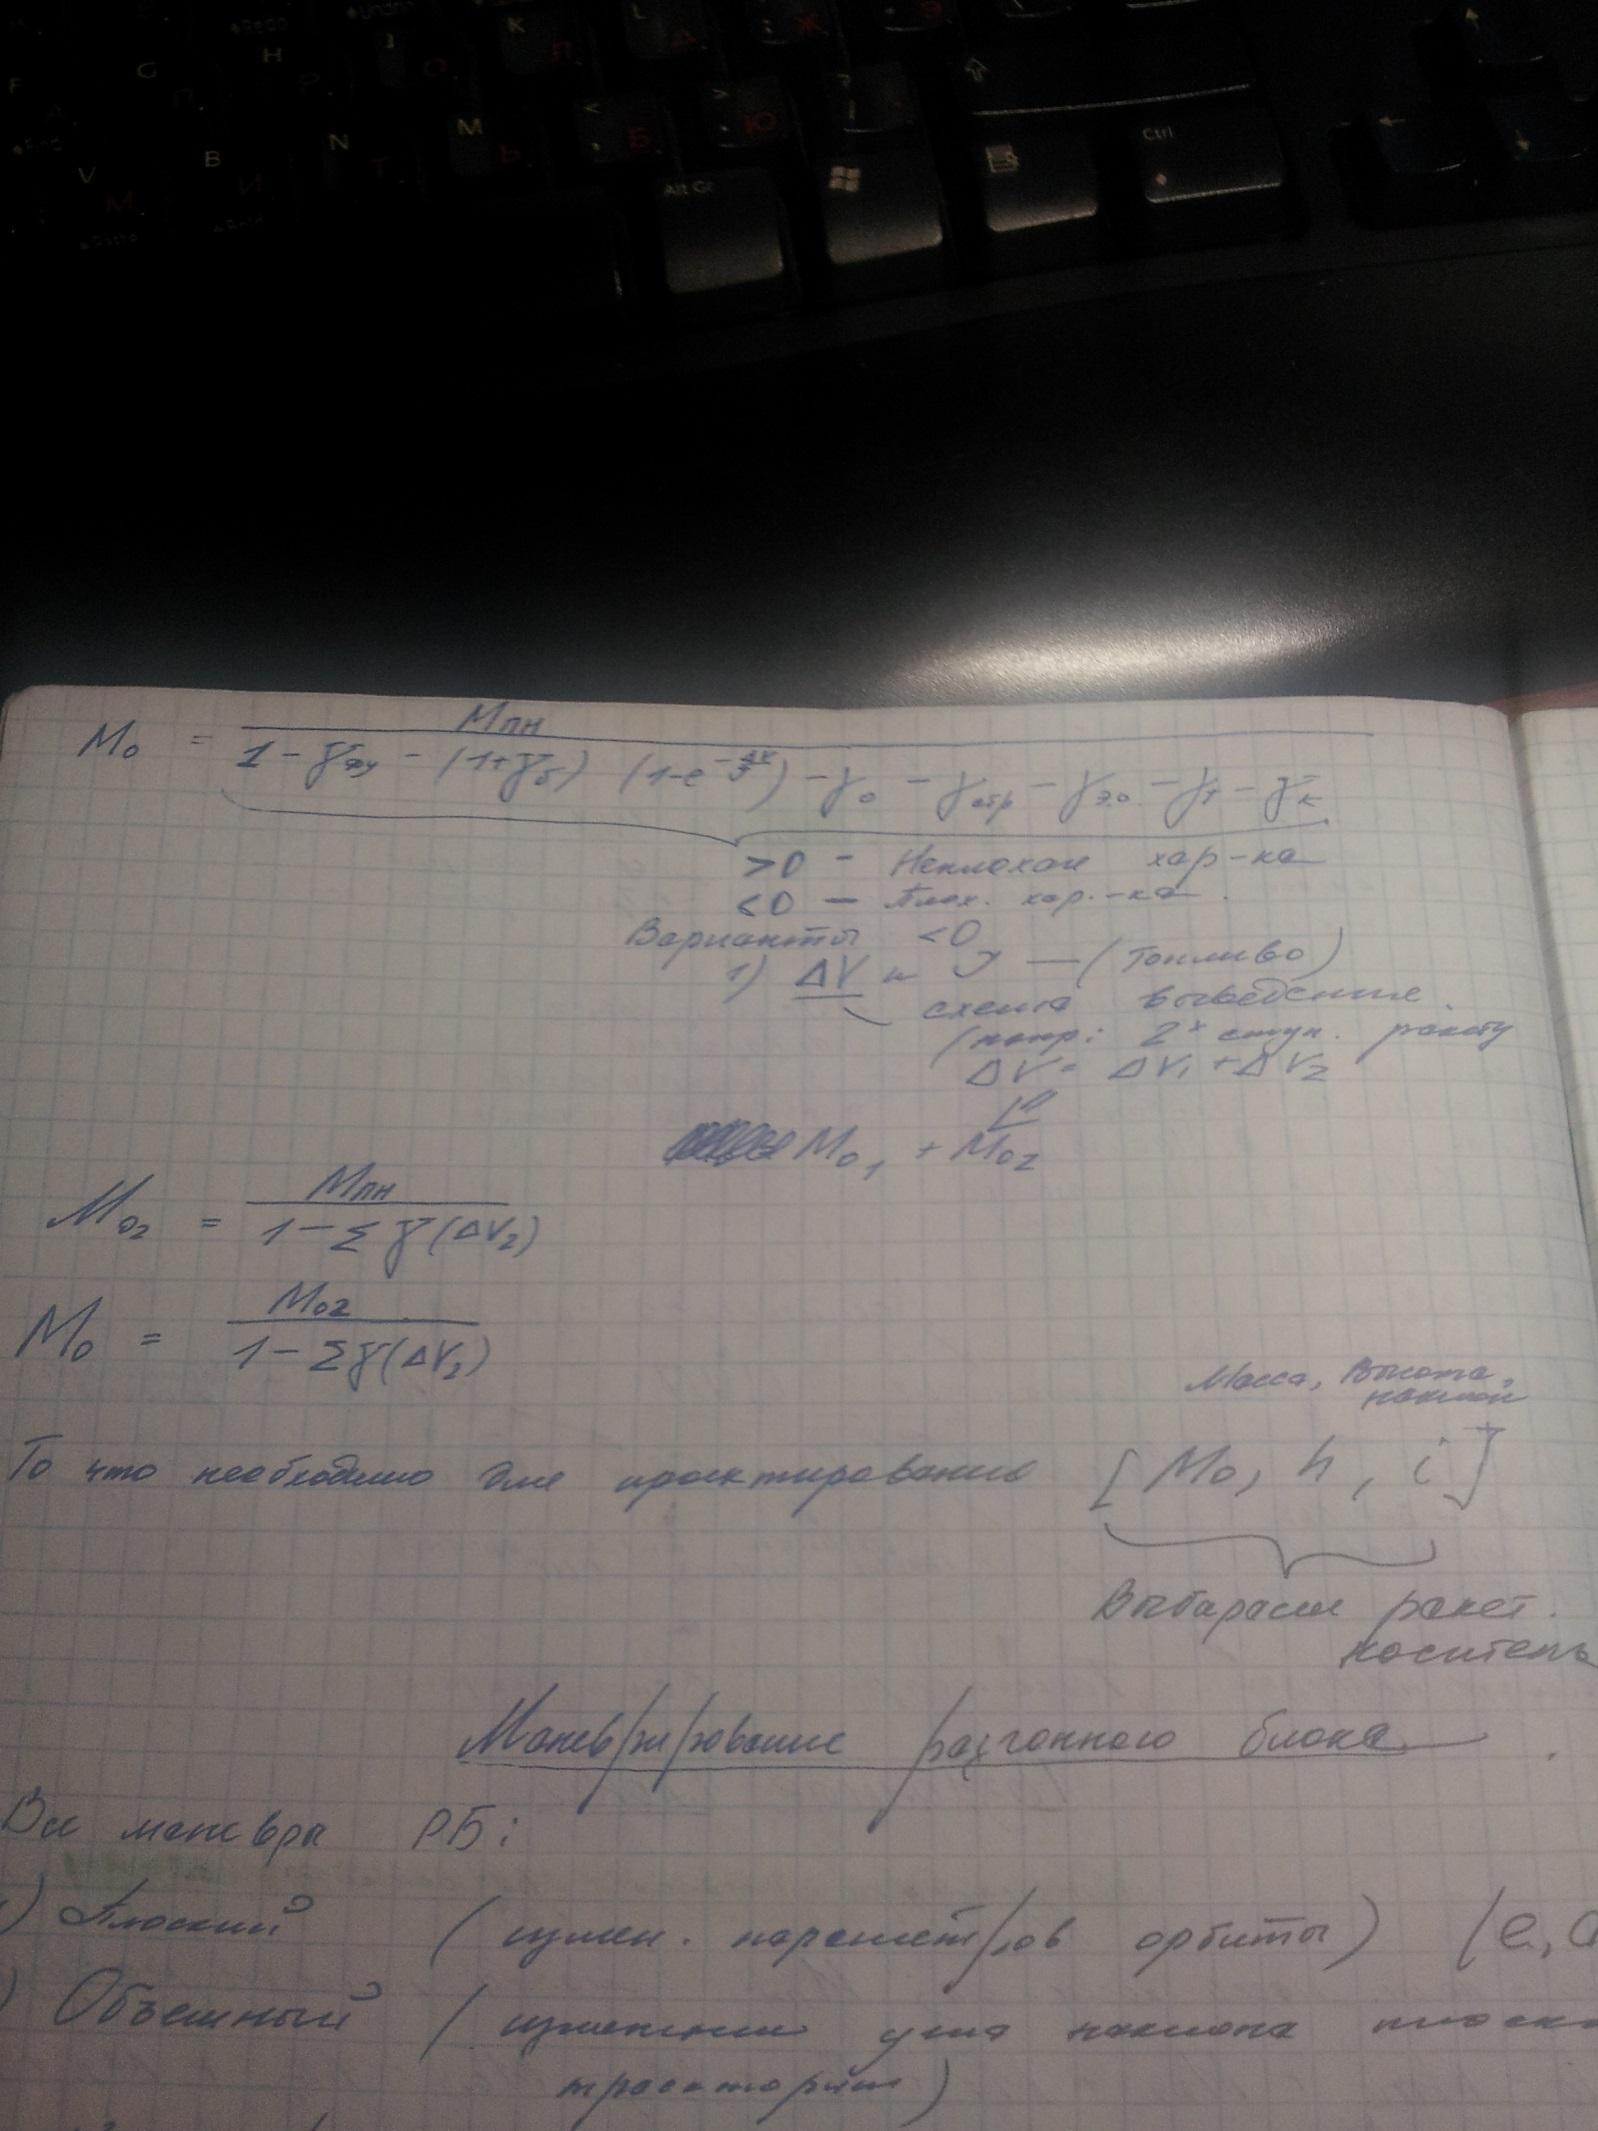 H
G
K
L
N
M
V
B
И
М
Т
Ь
Б
Ю
Alt Gr
Ctrl
M₀ = Mпн / (1 - γ̄ду - (1+γ̄б) (1-e^(-ΔV/J)) - γ̄о - γ̄стр - γ̄э.о. - γ̄т - γ̄к)
>0 - Неплохая хар-ка
<0 - Плох. хар.-ка.
Варианты <0
1) ΔV и J — (Топливо)
схема выведение.
(напр: 2х ступ. ракету
ΔV = ΔV₁ + ΔV₂
M₀₁ + M₀₂
M₀₂ = Mпн / (1 - Σ γ̄(ΔV₂))
M₀ = M₀₂ / (1 - Σ γ̄(ΔV₁))
Масса, Высота,
наклон
То что необходимо для проектирования [M₀, h, i]
Выбираем ракет.
носитель
Маневрирование разгонного блока.
Все маневры РБ:
) Плоский (измен. параметров орбиты) (e,
) Объемный (изменении угла наклона плоск
траектории)